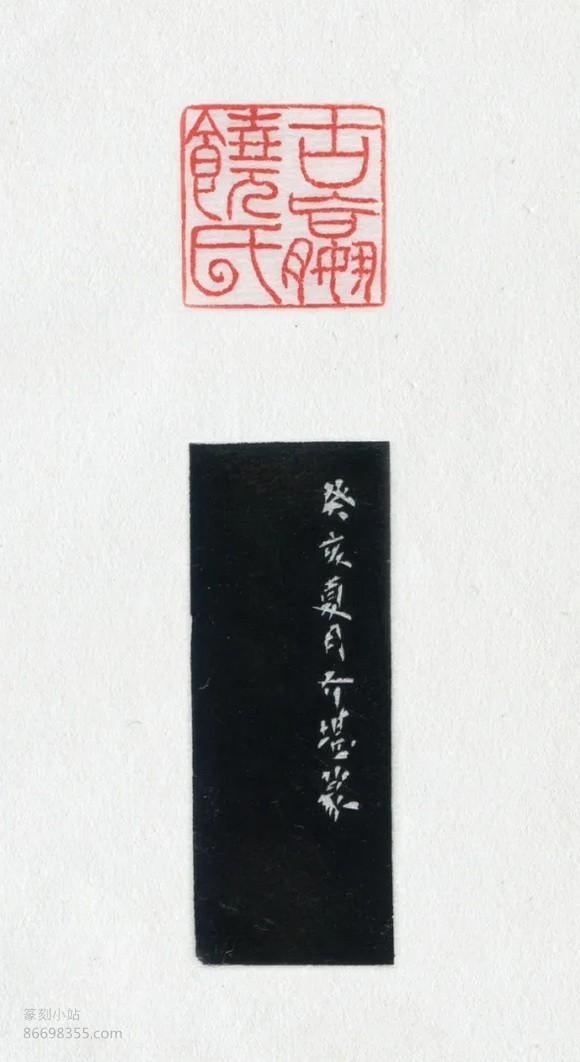 古嬴
饒氏
癸亥夏月介堪篆
篆刻小站
86698355.com